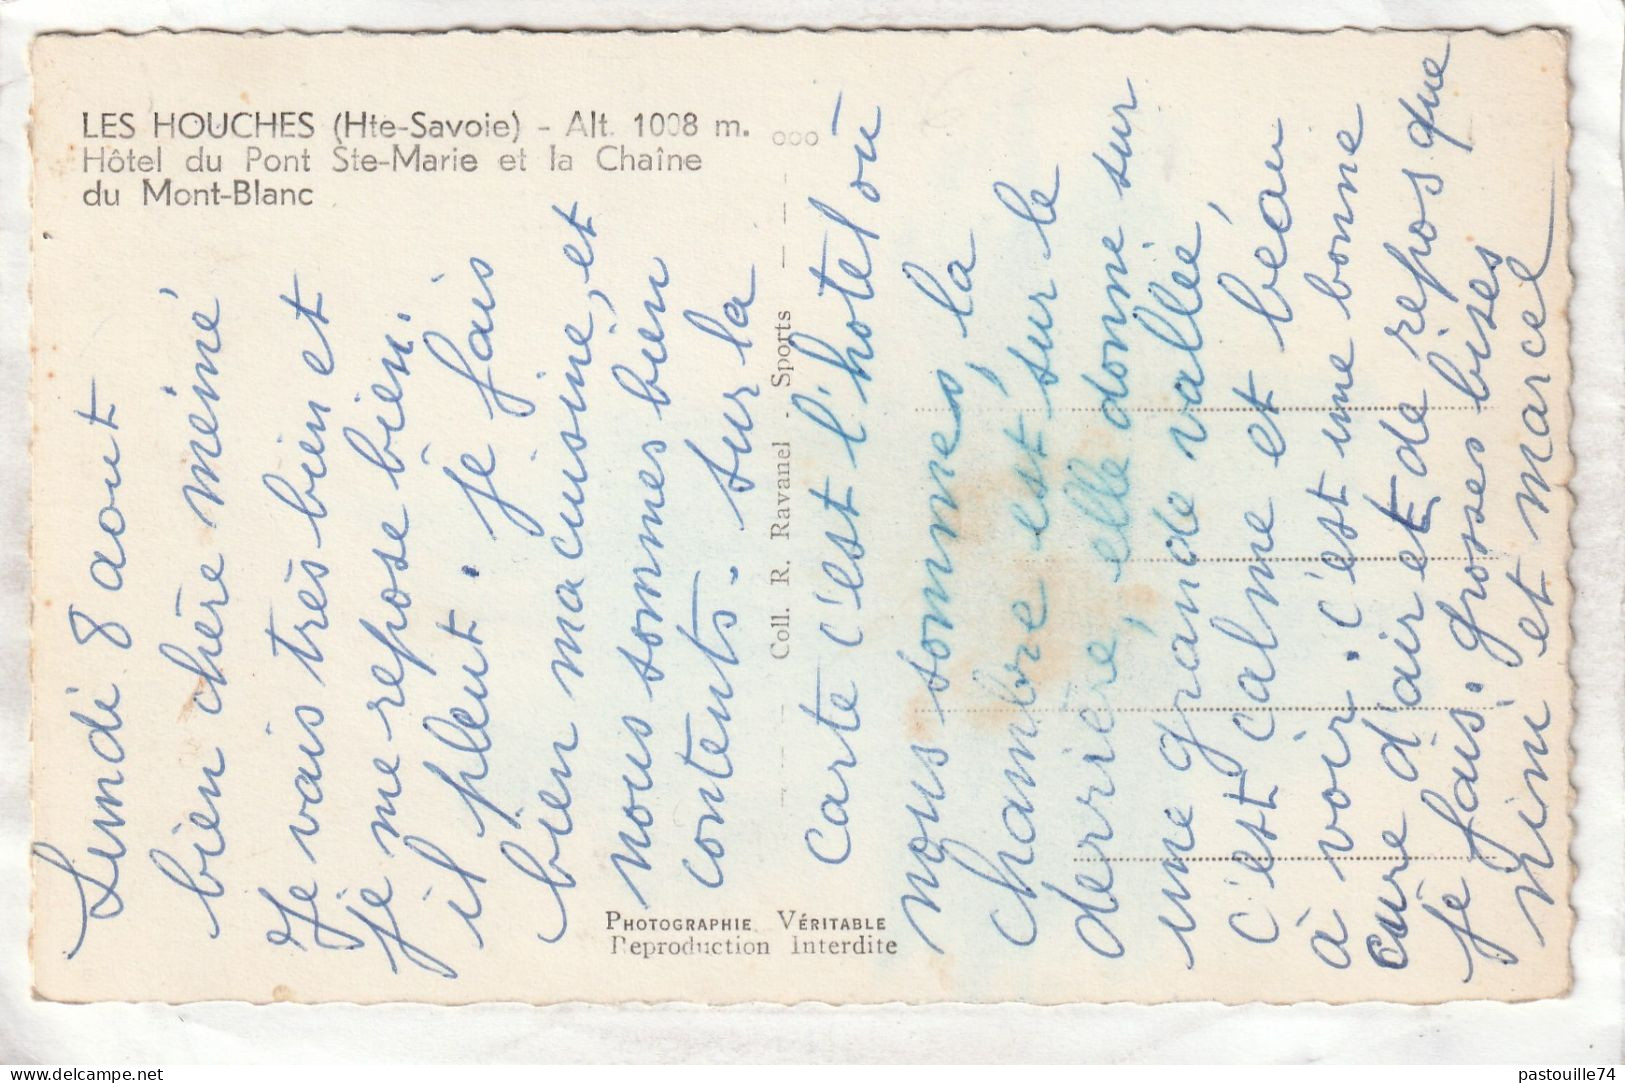 LES HOUCHES (Hte-Savoie) - Alt. 1008 m.
Hôtel du Pont Ste-Marie et la Chaîne
du Mont-Blanc
Coll. R. Ravanel - Sports
PHOTOGRAPHIE VÉRITABLE
Reproduction Interdite
Lundi 8 aout
bien chère mémé
Je vais très bien et
je me repose bien.
il pleut. je fais
bien ma cuisine, et
nous sommes bien
contents. sur la
carte c'est l'hotel où
nous sommes, la
chambre est sur le
derrière, elle donne sur
une grande vallée,
c'est calme et beau
à voir. c'est une bonne
cure d'air et de repos que
je fais. grosses bises
Nini et marcel
pastouille74